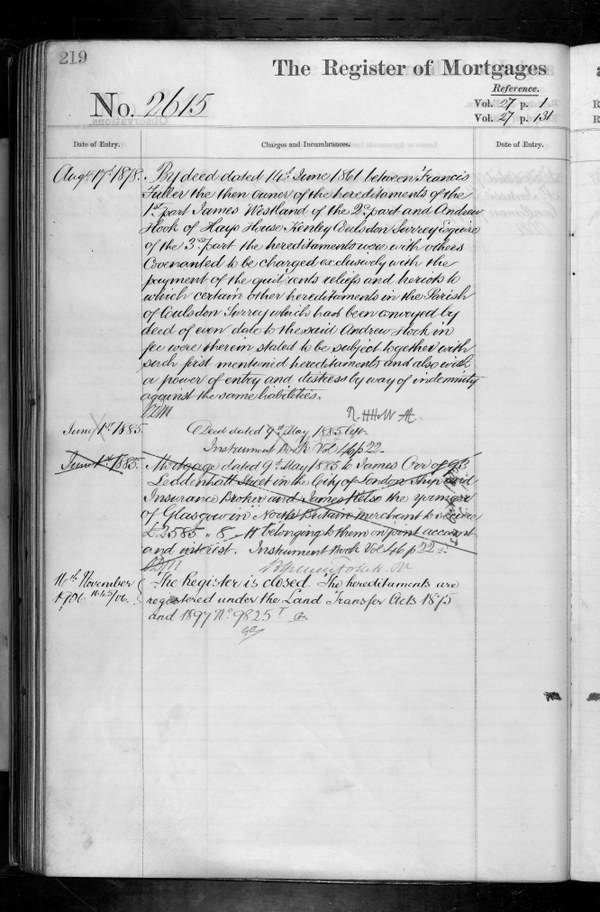 219
The Register of Mortgages
Reference.
No. 2615
Vol. 27 p. 1
Vol. 27 p. 131
Date of Entry.
Charges and Incumbrances.
Date of Entry.
Augt 17th 1878.
By deed dated 14th June 1861 between Francis
Fuller the then owner of the hereditaments of the
1st part James Westland of the 2nd part and Andrew
Hook of Hays House Kenley Coulsdon Surrey Esquire
of the 3rd part the hereditaments were with others
Covenanted to be charged exclusively with the
payment of the quit rents reliefs and heriots to
which certain other hereditaments in the Parish
of Coulsdon Surrey which had been conveyed by
deed of even date to the said Andrew Hook in
fee were therein stated to be subject together with
such first mentioned hereditaments and also with
a power of entry and distress by way of indemnity
against the same liabilities.
June 1st 1885.
Deed dated 9th May 1885 left.
Instrument Book Vol 46 p 22
June 1st 1885.
Mortgage dated 9th May 1885 to James Cox of 93
Leadenhall Street in the City of London Ship and
Insurance Broker and James Kelso the younger
of Glasgow in North Britain merchant to secure
£2585 " 8 " 11 belonging to them on joint account
and interest. Instrument Book Vol 46 p 22
16th November
1906.
The Register is closed. The hereditaments are
registered under the Land Transfer Acts 1875
and 1897 No. 9825